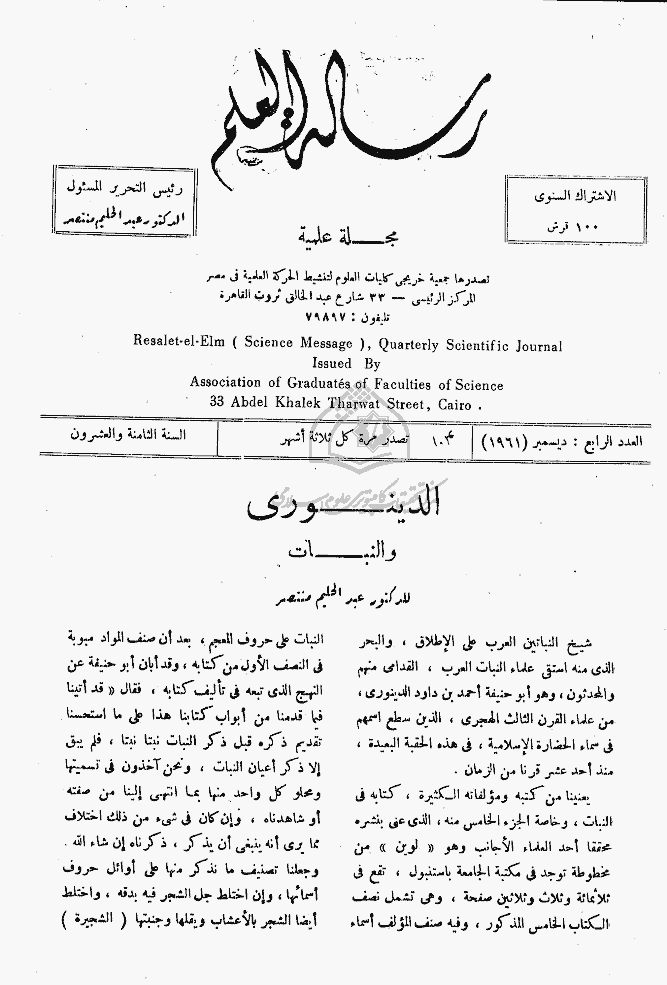 رسالة العلم
الاشتراك السنوى
١٠٠ قرش
رئيس التحرير المسئول
الدكتور عبد الحليم منتصر
مجلة علمية
تصدرها جمعية خريجى كليات العلوم لتنشيط الحركة العلمية فى مصر
المركز الرئيسى — ٣٣ شارع عبد الخالق ثروت القاهرة
تليفون : ٧٩٨٩٧
Resalet-el-Elm ( Science Message ), Quarterly Scientific Journal
Issued By
Association of Graduatés of Faculties of Science
33 Abdel Khalek Tharwat Street, Cairo .
العدد الرابع : ديسمبر (١٩٦١)
تصدر مرة كل ثلاثة أشهر
السنة الثامنة والعشرون
الدينورى
والنبات
للدكتور عبد الحليم منتصر
شيخ النباتين العرب على الإطلاق ، والبحر
الذى منه استقى علماء النبات العرب ، القدامى منهم
والمحدثون ، وهو أبو حنيفة أحمد بن داود الدينورى ،
من علماء القرن الثالث الهجرى ، الذين سطع اسمهم
فى سماء الحضارة الإسلامية ، فى هذه الحقبة البعيدة ،
منذ أحد عشر قرنا من الزمان .
يعنينا من كتبه ومؤلفاته الكثيرة ، كتابه فى
النبات ، وخاصة الجزء الخامس منه ، الذى عنى بنشره
محققا أحد العلماء الأجانب وهو « لوين » من
مخطوطة توجد فى مكتبة الجامعة باستنبول ، تقع فى
ثلاثمائة وثلاث وثلاثين صفحة ، وهى تشمل نصف
الكتاب الخامس المذكور ، وفيه صنف المؤلف أسماء
النبات على حروف المعجم ، بعد أن صنف المواد مبوبة
فى النصف الأول من كتابه ، وقد أبان أبو حنيفة عن
النهج الذى تبعه فى تأليف كتابه ، فقال « قد أتينا
فيما قدمنا من أبواب كتابنا هذا على ما استحسنا
تقديم ذكره قبل ذكر النبات نبتا نبتا ، فلم يبق
إلا ذكر أعيان النبات ، ونحن آخذون فى تسميتها
ومحلو كل واحد منها بما انتهى إلينا من صفته
أو شاهدناه ، وإن كان فى شىء من ذلك اختلاف
مما يرى أنه ينبغى أن يذكر ، ذكرناه إن شاء الله .
وجعلنا تصنيف ما نذكر منها على أوائل حروف
أسمائها ، وإن اختلط جل الشجر فيه بدقه ، واختلط
أيضا الشجر بالأعشاب وبقلها وجنبتها ( الشجيرة )